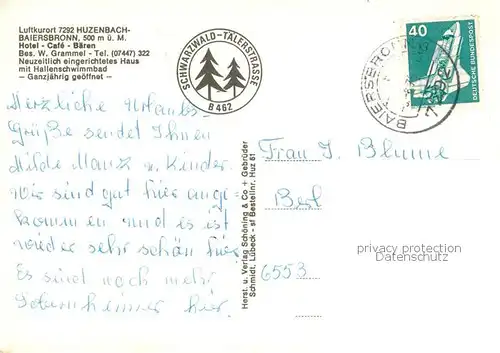 Luftkurort 7292 HUZENBACH-
BAIERSBRONN, 500 m ü. M.
Hotel - Café - Bären
Bes. W. Grammel - Tel. (07447) 322
Neuzeitlich eingerichtetes Haus
mit Hallenschwimmbad
- Ganzjährig geöffnet -
SCHWARZWALD-TÄLERSTRASSE
B 462
40
DEUTSCHE BUNDESPOST
BAIERSBRONN
7292
Herzliche Urlaubs-
Grüße sendet Ihnen
Hilde Manz u. Kinder.
Wir sind gut hier ange-
kommen und es ist
wieder sehr schön hier.
Es sind noch mehr
Sobernheimer hier.
Herst. u. Verlag Schöning & Co + Gebrüder
Schmidt, Lübeck - sf Bestellnr. Huz 61
Frau I. Blume
6553
privacy protection
Datenschutz